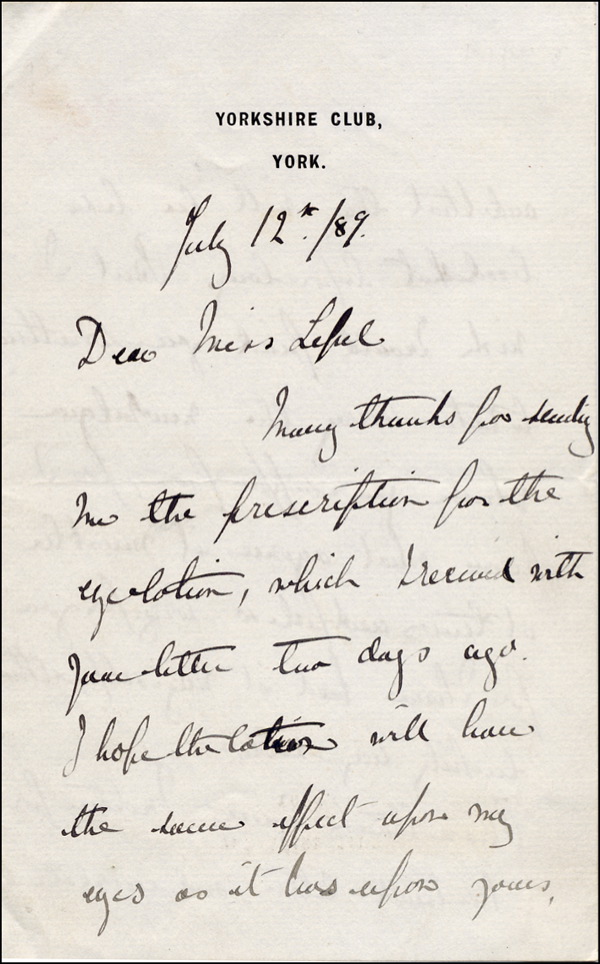 YORKSHIRE CLUB,
YORK.
July 12th/89.
Dear Miss
Many thanks for sending
me the prescription for the
eyelotion, which I received with
your letter two days ago.
I hope the lotion will have
the same effect upon my
eyes as it has upon yours,